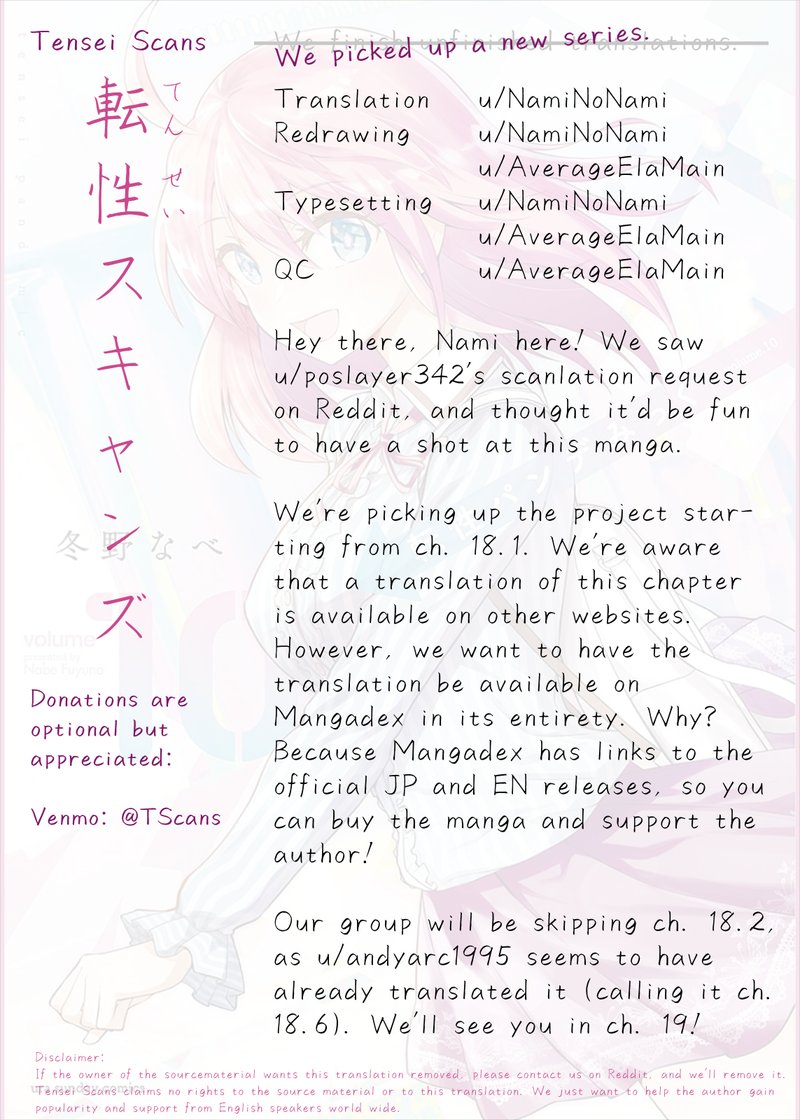 Tensei Scans
We finish unfinished translations.
We picked up a new series.
転性スキャンズ
てんせい
Translation u/NamiNoNami
Redrawing u/NamiNoNami
u/AverageElaMain
Typesetting u/NamiNoNami
u/AverageElaMain
QC u/AverageElaMain
Hey there, Nami here! We saw
u/poslayer342's scanlation request
on Reddit, and thought it'd be fun
to have a shot at this manga.
We're picking up the project star-
ting from ch. 18.1. We're aware
that a translation of this chapter
is available on other websites.
However, we want to have the
translation be available on
Mangadex in its entirety. Why?
Because Mangadex has links to the
official JP and EN releases, so you
can buy the manga and support the
author!
Our group will be skipping ch. 18.2,
as u/andyarc1995 seems to have
already translated it (calling it ch.
18.6). We'll see you in ch. 19!
冬野なべ
volume
presented by
Nabe Fuyuno
10
Donations are
optional but
appreciated:
Venmo: @TScans
Disclaimer:
If the owner of the sourcematerial wants this translation removed, please contact us on Reddit, and we'll remove it.
Tensei Scans claims no rights to the source material or to this translation. We just want to help the author gain
popularity and support from English speakers world wide.